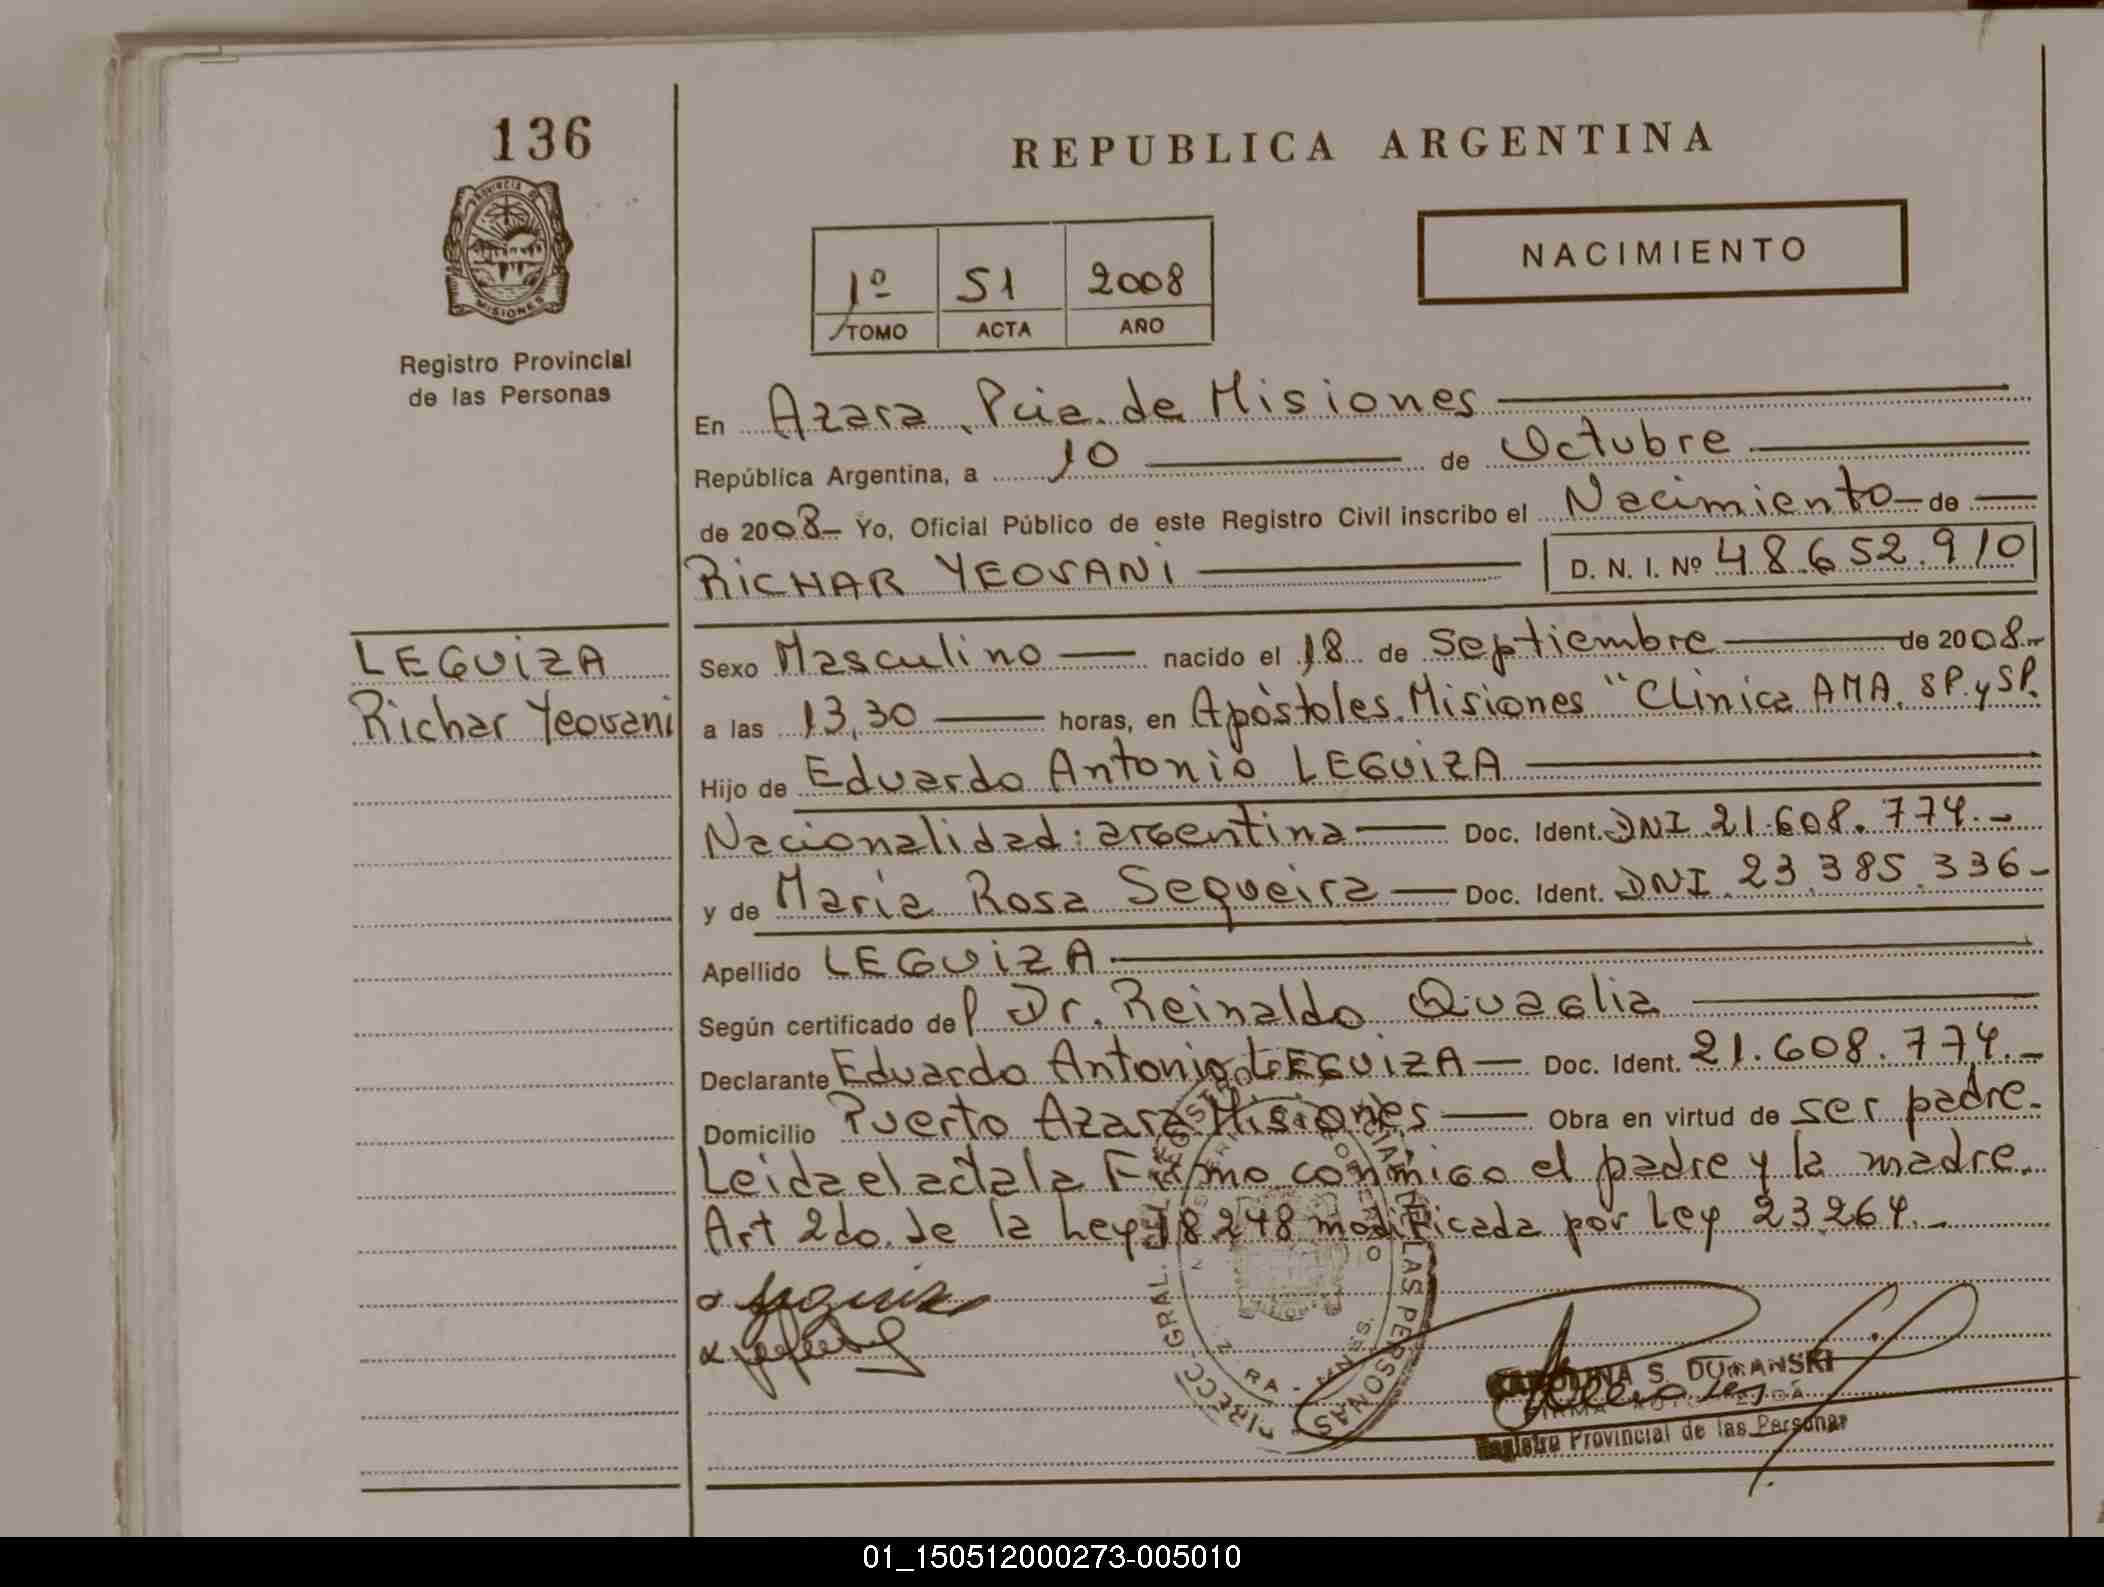 136
PROVINCIA DE
MISIONES
Registro Provincial
de las Personas
REPUBLICA ARGENTINA
NACIMIENTO
1º 51 2008
TOMO ACTA AÑO
En Azara, Pcia. de Misiones
República Argentina, a 10 de Octubre
de 2008- Yo, Oficial Público de este Registro Civil inscribo el Nacimiento de
RICHAR YEOVANI D. N. I. Nº 48.652.910
LEGUIZA
Richar Yeovani
Sexo Masculino nacido el 18 de Septiembre de 2008-
a las 13,30 horas, en Apóstoles, Misiones "Clinica AMA. SP. y SP.
Hijo de Eduardo Antonio LEGUIZA
Nacionalidad: argentina Doc. Ident. DNI 21.608.774.-
y de María Rosa Sequeira Doc. Ident. DNI 23.385.336-
Apellido LEGUIZA
Según certificado del Dr. Reinaldo Quaglia
Declarante Eduardo Antonio LEGUIZA Doc. Ident. 21.608.774.-
Domicilio Puerto Azara Misiones Obra en virtud de ser padre.
Leida el acta la Firmo conmigo el padre y la madre.
Art 2do. de la Ley 18248 modificada por Ley 23264.-
DIRECC. GRAL. DEL REGISTRO PROVINCIAL DE LAS PERSONAS
S. DURANSKI
Registro Provincial de las Personas
01_150512000273-005010